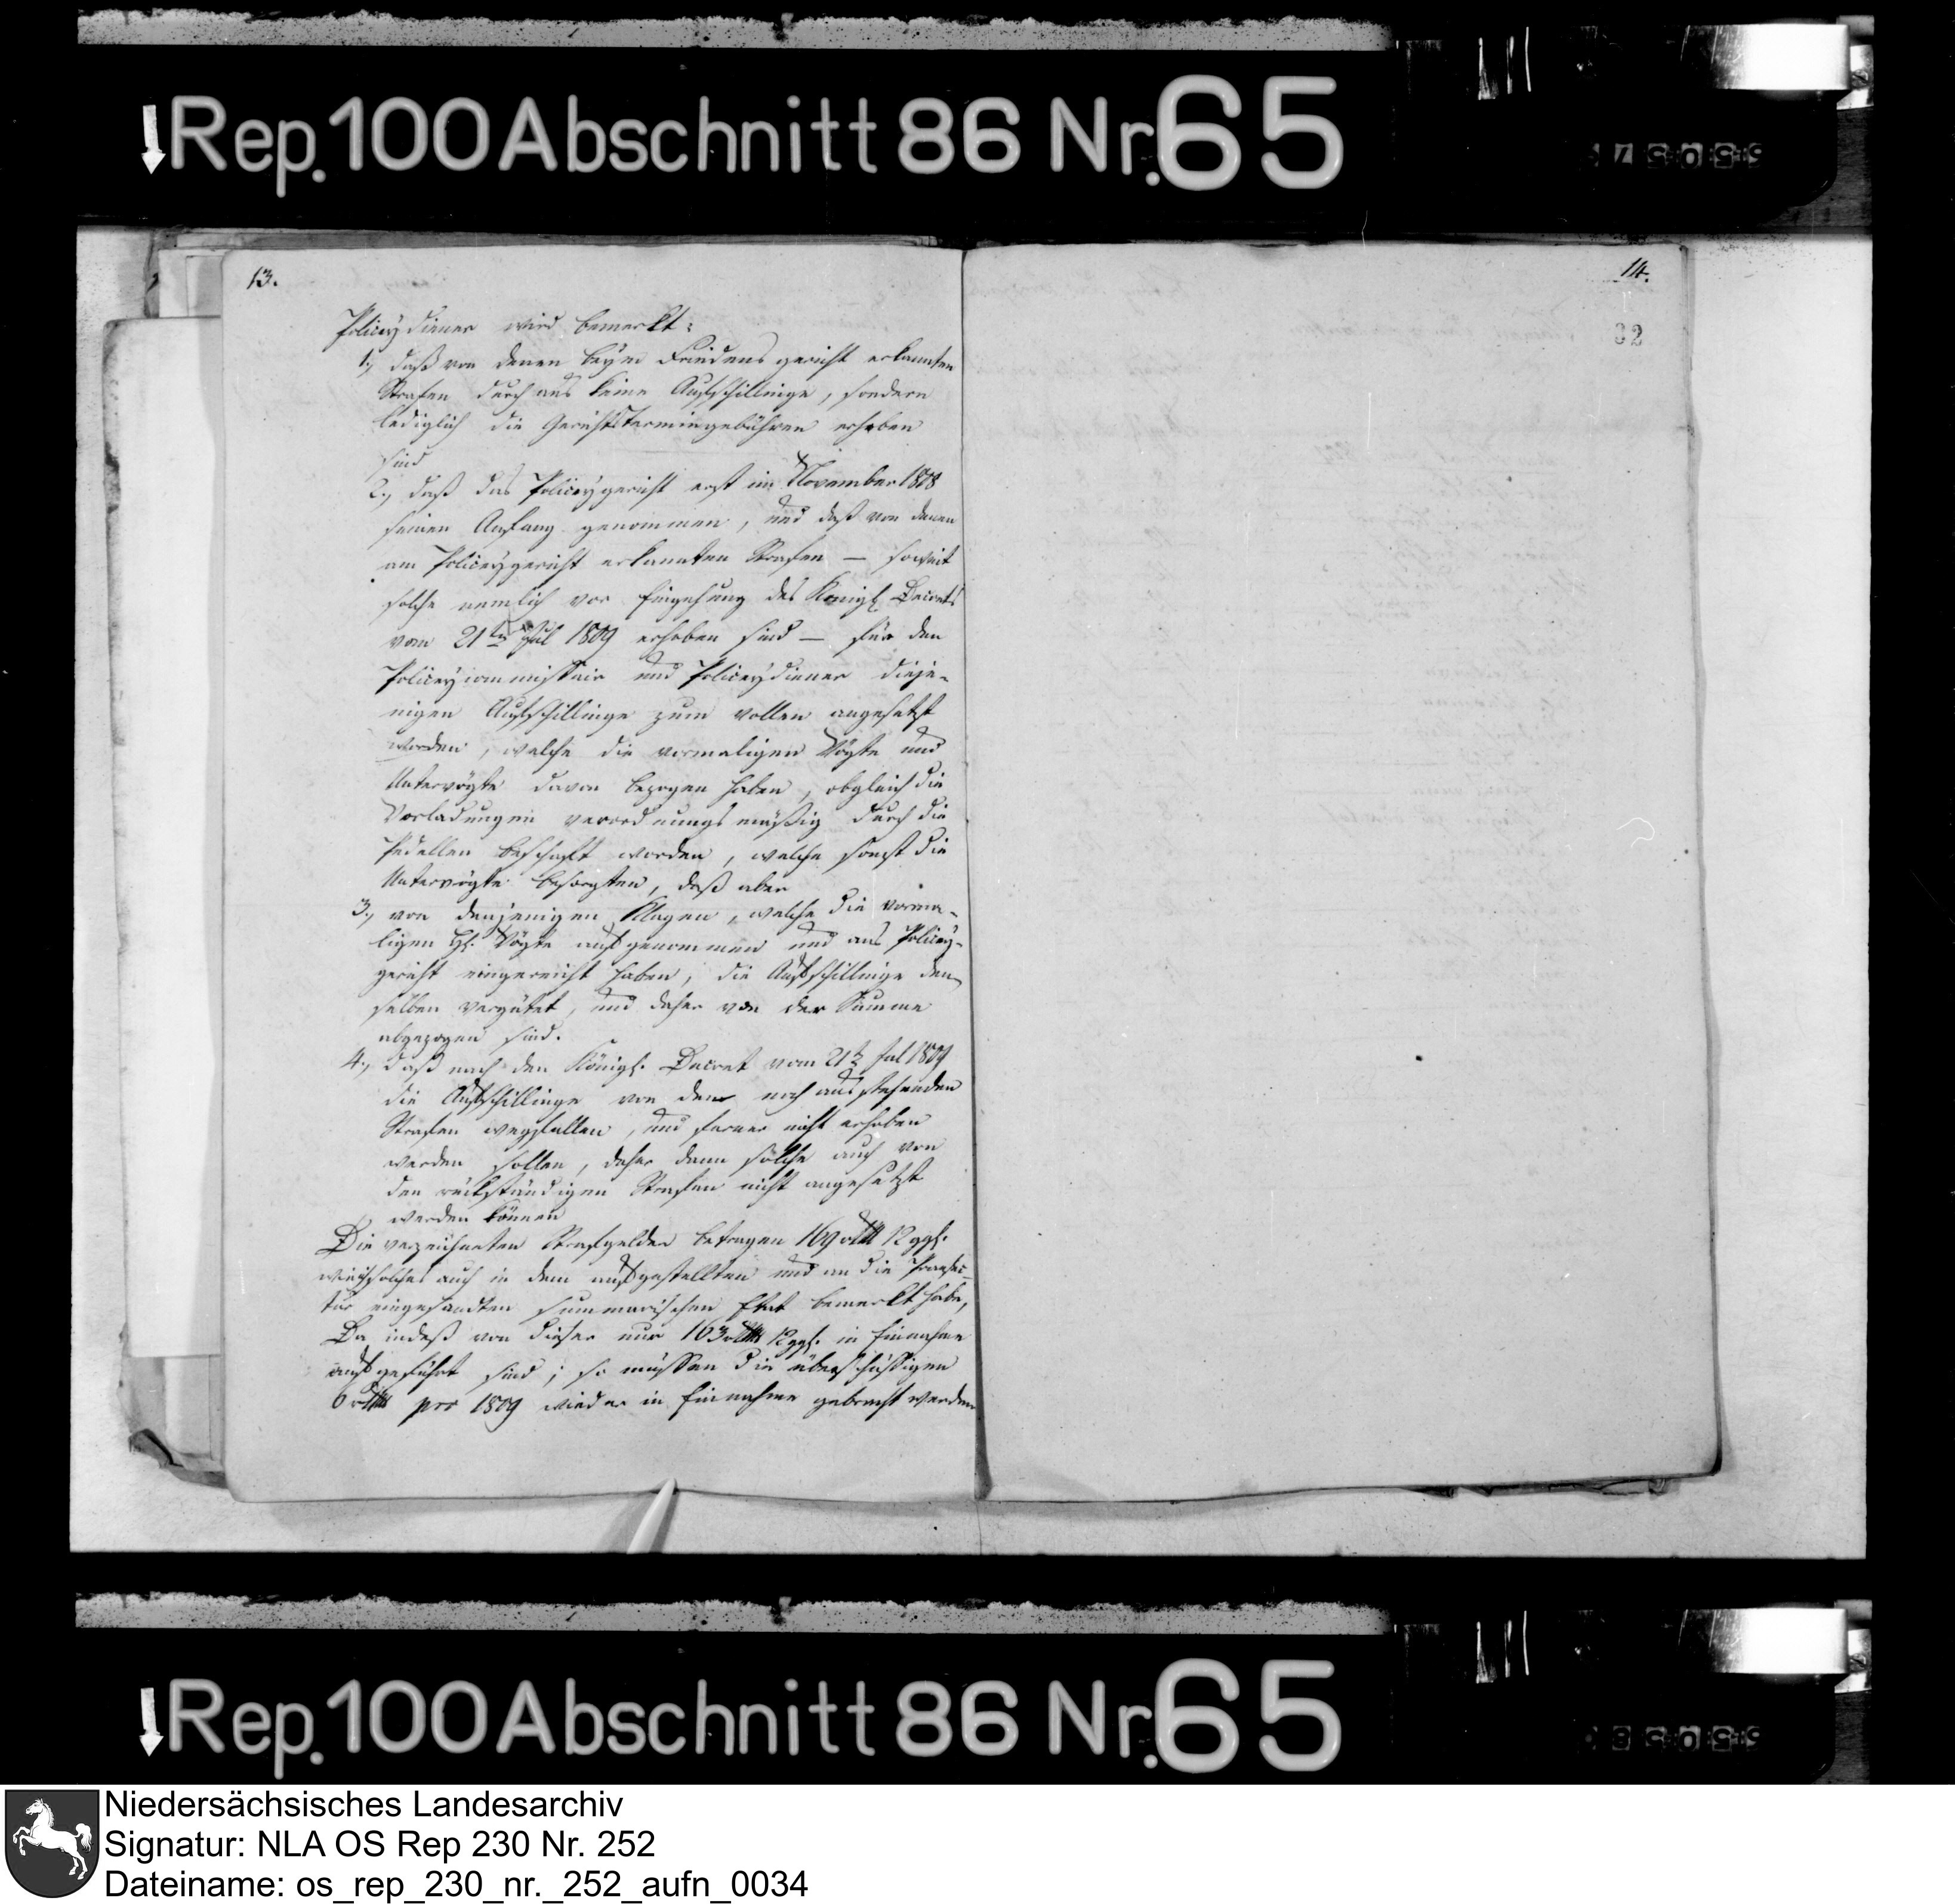 Rep. 100 Abschnitt 86 Nr. 65
13.
Policeydiener wird bemerkt:
1., daß von denen beym Friedensgericht erkannten
Strafen durchaus keine Amtsschillinge, sondern
lediglich die Gerichtstermingebühren erhoben
sind
2., daß das Policeygericht erst im November 1808
seinen Anfang genommen, und daß von denen
am Policeygericht erkannten Strafen — soweit
solche nemlich vor Eingehung des Königl. Decrets
vom 21ten Jul 1809 erhoben sind — für den
Policeycommissair und Policeydiener dieje-
nigen Amtsschillinge zum vollen angesetzt
worden, welche die vormaligen Vögte und
Untervögte davon bezogen haben, obgleich die
Vorladungen verordnungsmäßig durch die
Pedellen beschafft worden, welche sonst die
Untervögte besorgten, daß aber
3., von denjenigen Klagen, welche die vorma-
ligen H. Vögte aufgenommen und ans Policey-
gericht eingereicht haben, die Amtsschillinge den
selben vergütet, und daher von der Summe
abgezogen sind.
4., daß nach den Königl. Decret vom 21t Jul 1809
die Amtsschillinge von den noch ausstehenden
Strafen wegfallen, und ferner nicht erhoben
werden sollen, daher denn solche auch von
den rückständigen Strafen nicht angesetzt
werden können
Die verzeichneten Strafgelder betragen 169 rthl 12 ggl.
solches auch in dem aufgestellten und an die Praefec-
tur eingesandten summarischen Etat bemerkt habe,
Da indeß von dieser nur 163 rthl 12 ggl. in Einnahme
aufgeführt sind; so müssen die überschüssigen
6 rthl pro 1809 wieder in Einnahme gebracht werden
14.
32
Rep. 100 Abschnitt 86 Nr. 65
Niedersächsisches Landesarchiv
Signatur: NLA OS Rep 230 Nr. 252
Dateiname: os_rep_230_nr._252_aufn_0034